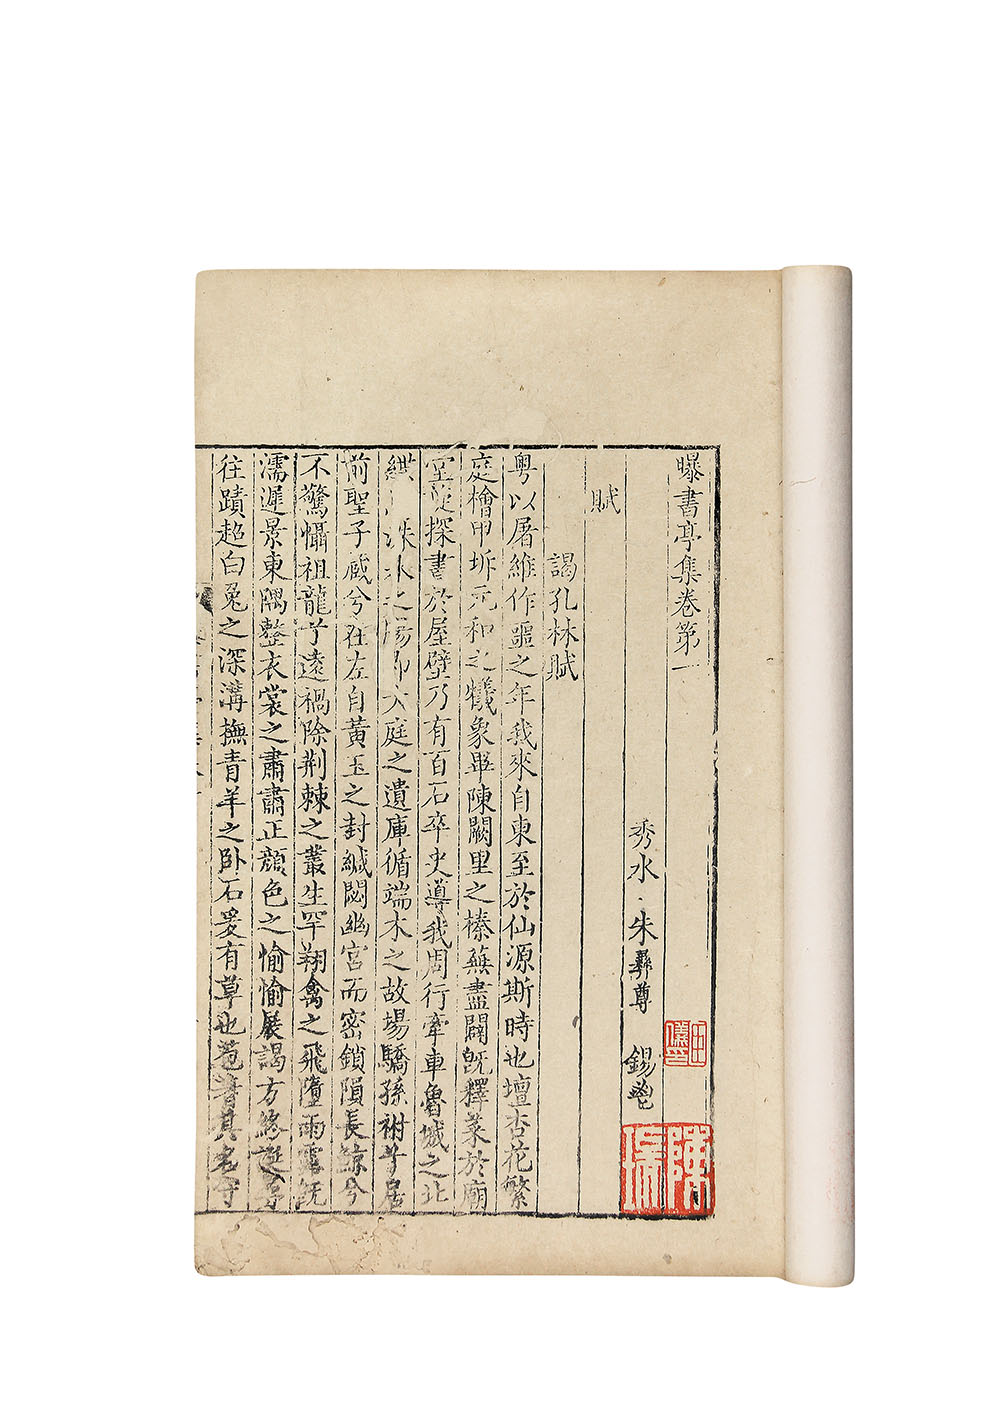 曝書亭集卷第一
秀水朱彝尊錫鬯
賦
謁孔林賦
粤以屠維作噩之年我來自東至於仙源斯時也壇杏花繁
庭檜甲坼元和之犧象畢陳闕里之榛蕪盡闢既釋菜於廟
堂探書於屋壁乃有百石卒史導我周行牽車魯城之北
洙水之場即大庭之遺庫循端木之故場驕孫祔兮居
前聖子儼兮在左自黃玉之封緘閟幽宮而密鎖隕長諒兮
不驚懾祖龍兮遠禍除荆棘之叢生罕翔禽之飛墮雨露既
濡遲景東隅整衣裳之肅肅正顏色之愉愉展謁方終逝尋
往蹟超白兔之深溝撫青羊之卧石爰有草也苞蓍其名守